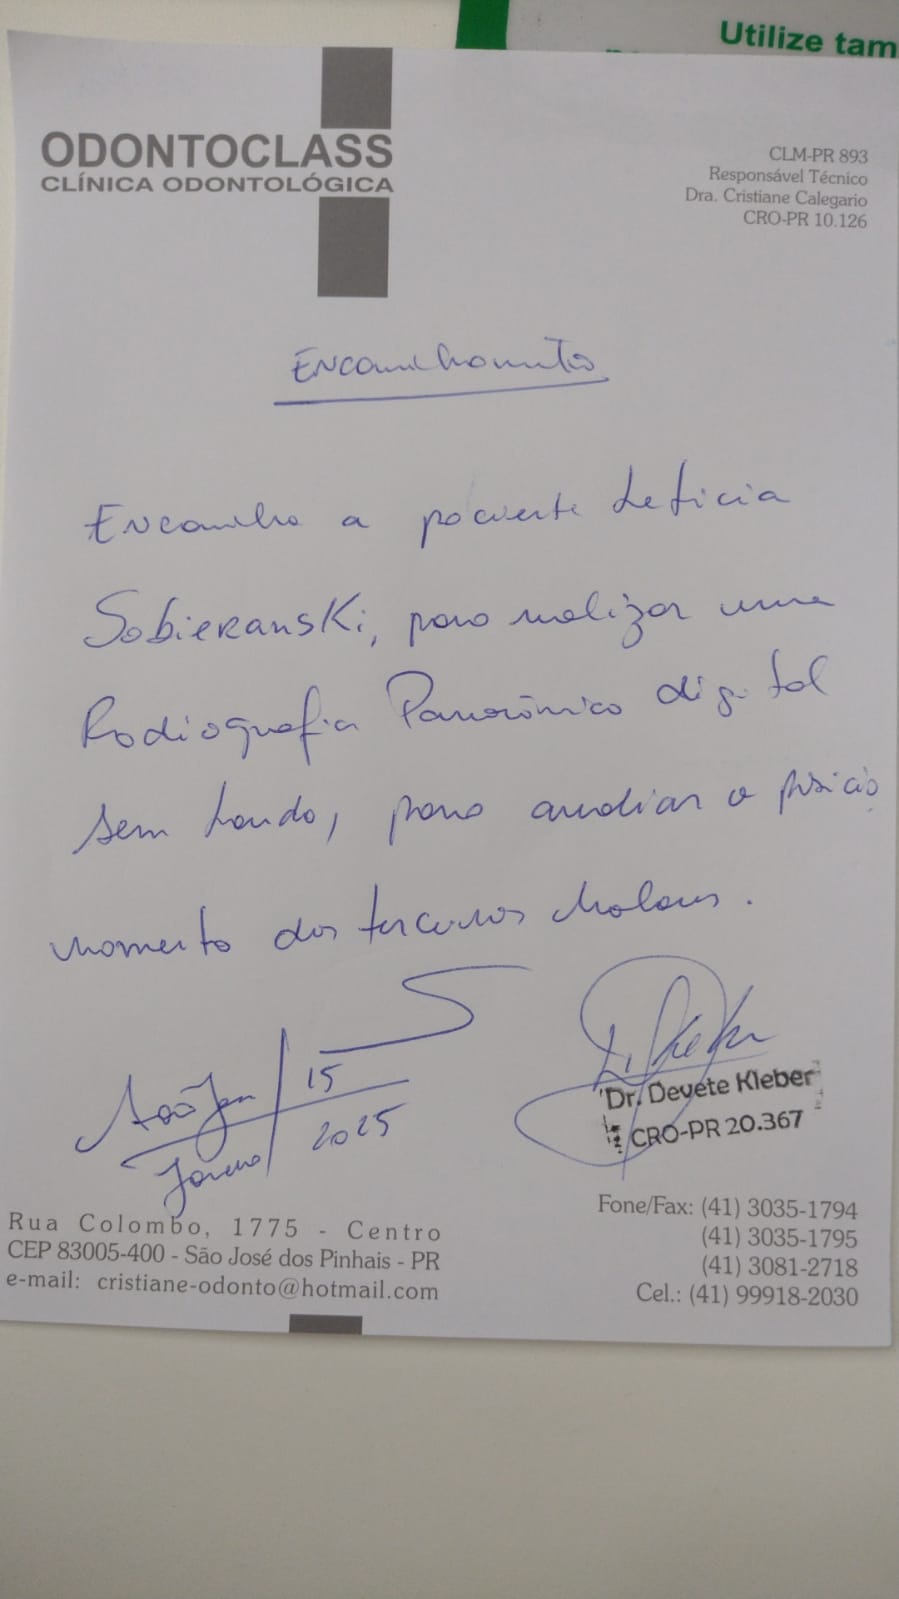 Utilize tam
ODONTOCLASS
CLÍNICA ODONTOLÓGICA
CLM-PR 893
Responsável Técnico
Dra. Cristiane Calegario
CRO-PR 10.126
Encaminhamento
Encaminho a paciente Leticia
Sobieranski, para realizar uma
Radiografia Panorâmica digital
sem laudo, para avaliar o posicio
namento dos terceiros Molares.
15
2025
Dr. Devete Kleber
CRO-PR 20.367
Rua Colombo, 1775 - Centro
CEP 83005-400 - São José dos Pinhais - PR
e-mail: cristiane-odonto@hotmail.com
Fone/Fax: (41) 3035-1794
(41) 3035-1795
(41) 3081-2718
Cel.: (41) 99918-2030